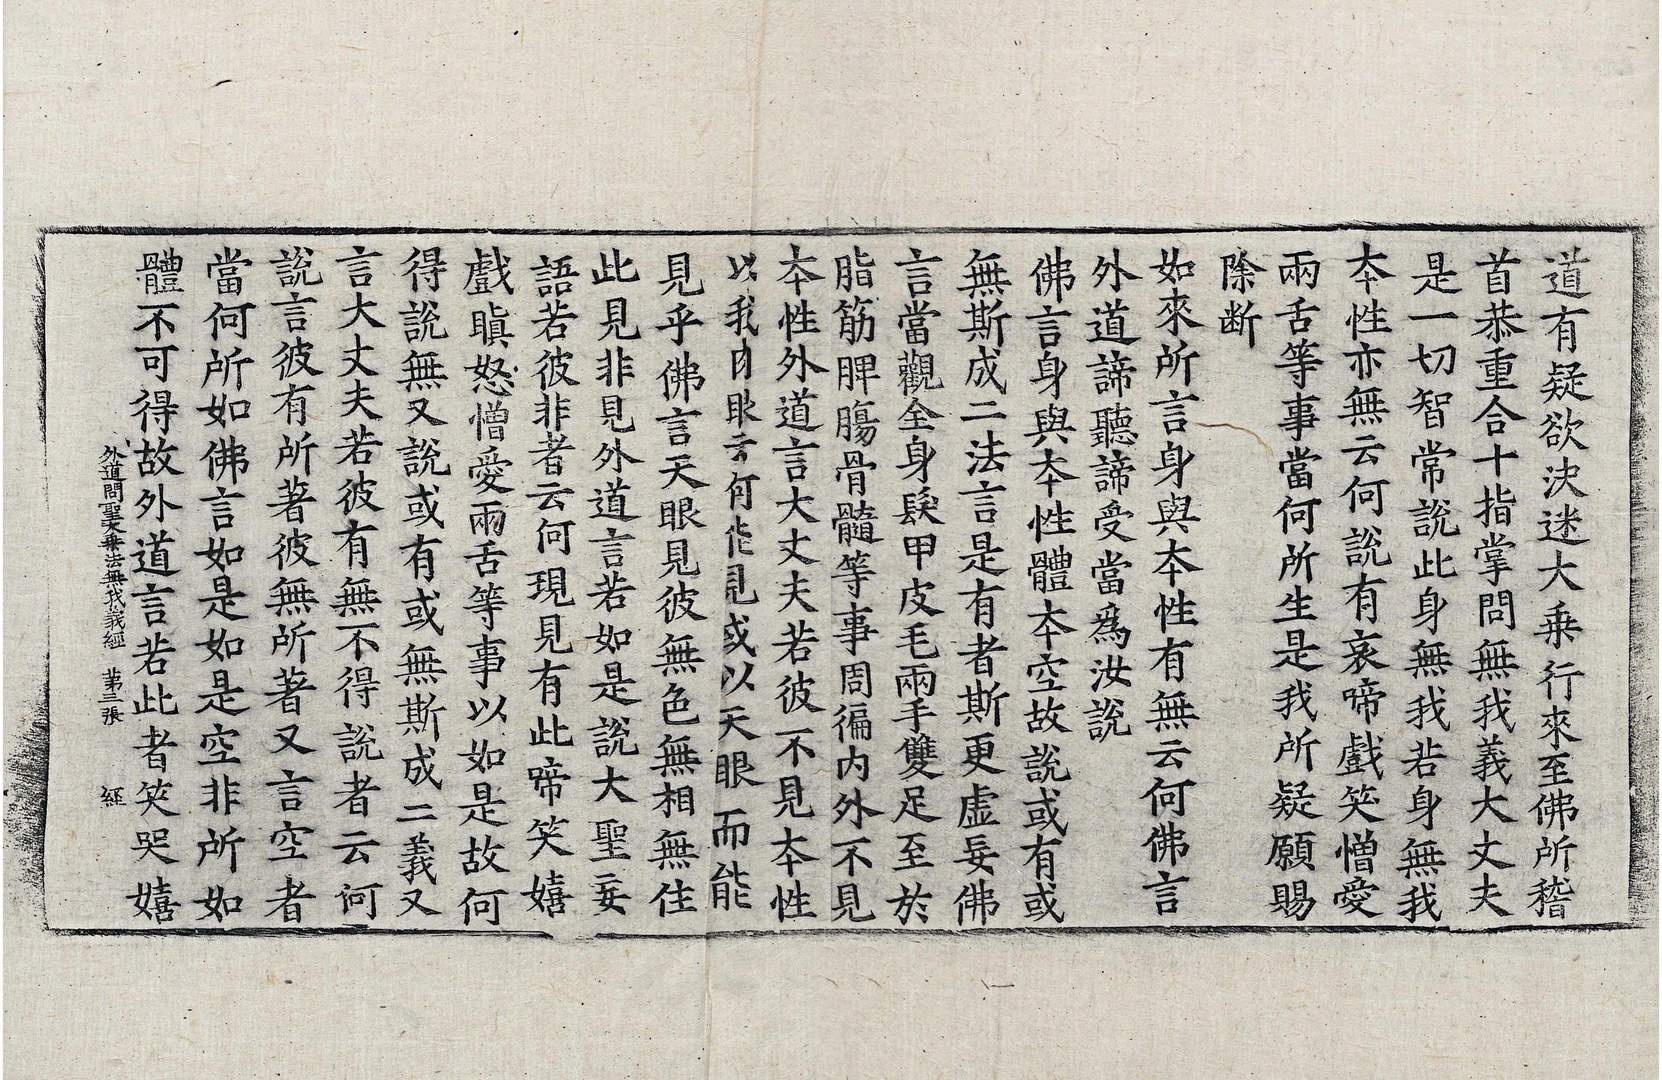 道有疑欲決迷大乗行來至佛所稽
首恭重合十指掌問無我義大丈夫
是一切智常說此身無我若身無我
本性亦無云何說有哀啼戲笑憎愛
兩舌等事當何所生是我所疑願賜
除断
如來所言身與本性有無云何佛言
外道諦聽諦受當爲汝說
佛言身與本性體本空故說或有或
無斯成二法言是有者斯更虛妄佛
言當觀全身髮甲皮毛兩手雙足至於
脂筋脾膓骨髓等事周徧内外不見
本性外道言大丈夫若彼不見本性
以我肉眼云何能見或以天眼而能
見乎佛言天眼見彼無色無相無住
此見非見外道言若如是說大聖妄
語若彼非者云何現見有此啼笑嬉
戲瞋怒憎愛兩舌等事以如是故何
得說無又說或有或無斯成二義又
言大丈夫若彼有無不得說者云何
說言彼有所著彼無所著又言空者
當何所如佛言如是如是空非所如
體不可得故外道言若此者笑哭嬉
外道問聖大乗法無我義經　第三張　経